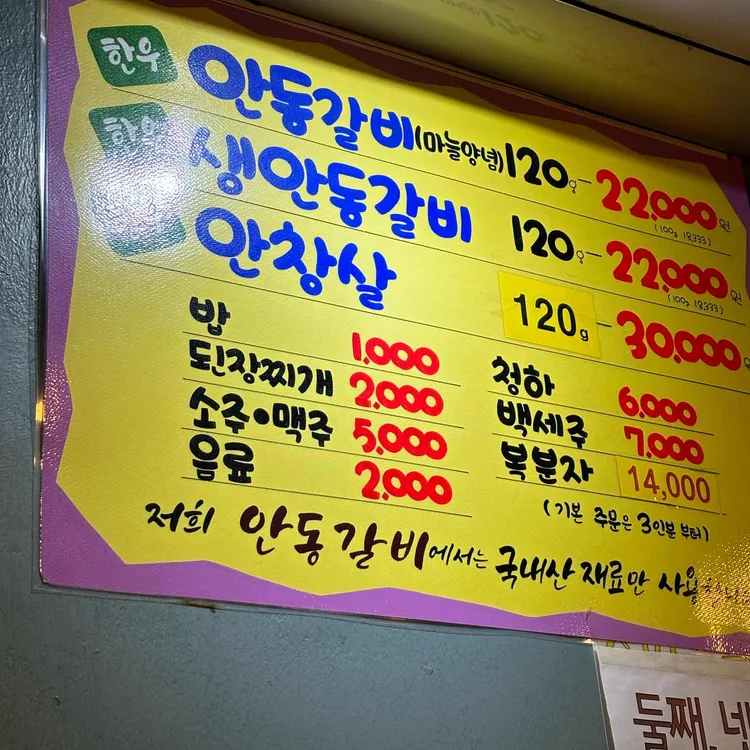 한우 안동갈비(마늘양념) 120g - 22,000원
(100g 18,333)
한우 생안동갈비 120g - 22,000원
(100g 18,333)
안창살 120g - 30,000원
밥 1,000
된장찌개 2,000
소주•맥주 5,000
음료 2,000
청하 6,000
백세주 7,000
복분자 14,000
(기본 주문은 3인분 부터)
저희 안동갈비에서는 국내산 재료만 사용합니다
둘째